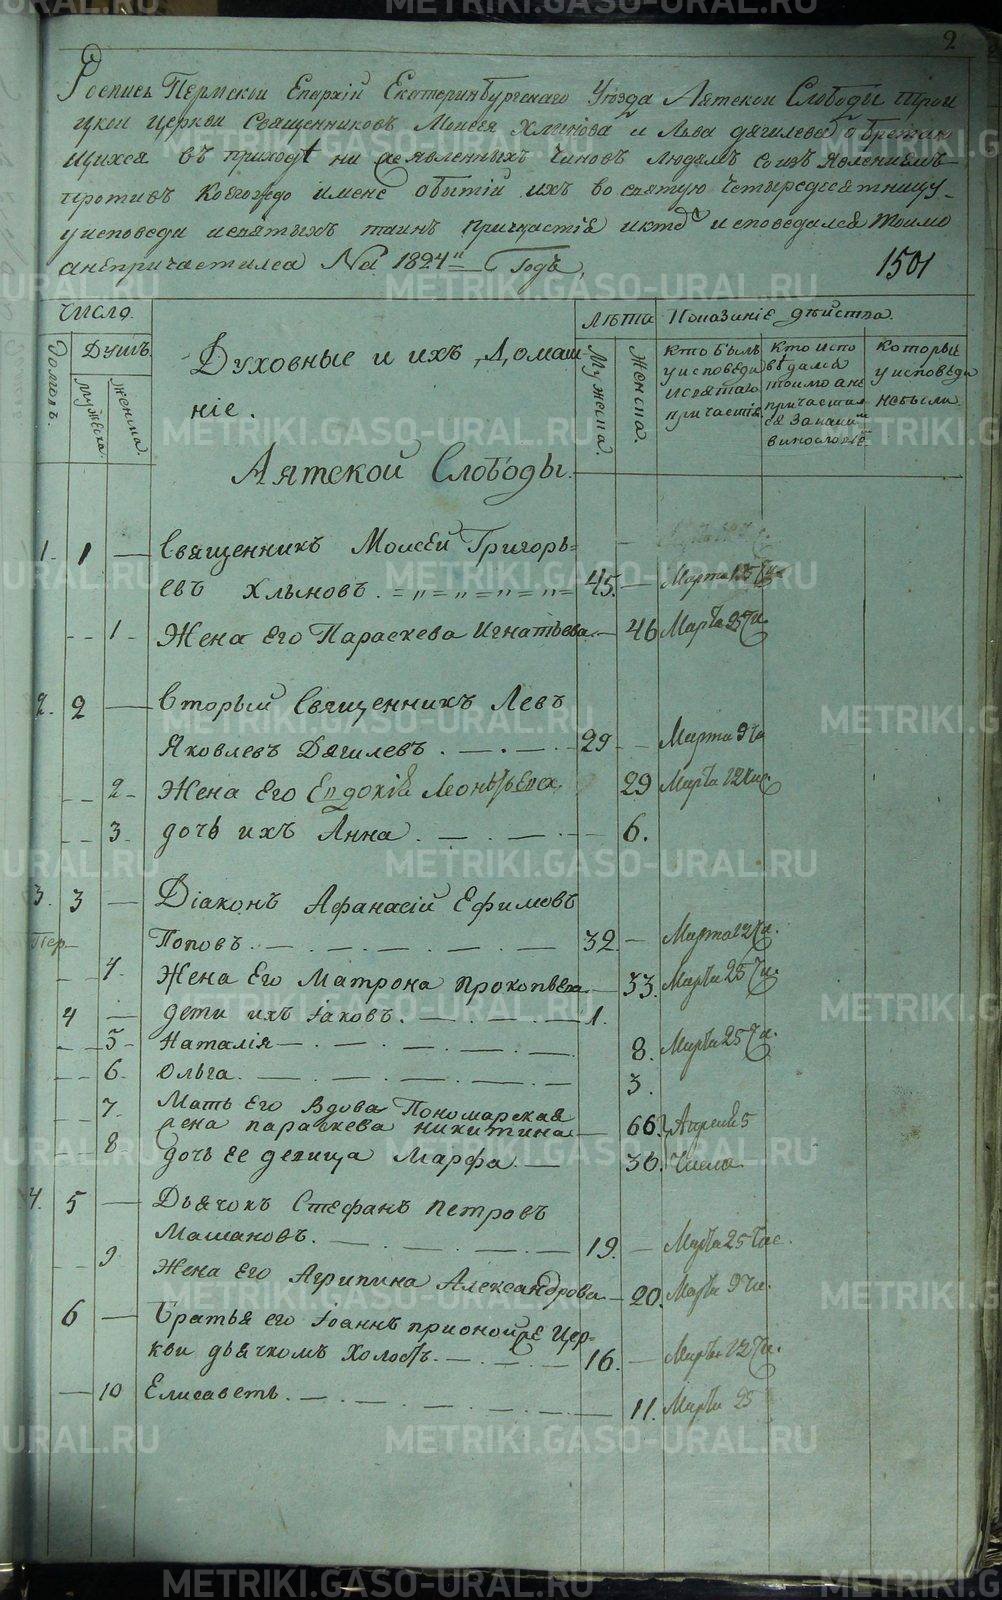 2
Роспись Пермской Епархіи Екатеринбургскаго Уѣзда Аятской Слободы Трои
цкой Церкви Священниковъ Моисея Хлынова и Льва Дягилева обретаю
щихся въ приходѣ ни жеявленныхъ чиновъ людемъ со изъявлениемъ
противъ коегождо имене о бытіи ихъ во святую четыредесятницу
у исповеди и святыхъ таинъ причастіе и кто исповедался токмо
а непричастился На 1824й Годъ.
1501
Число.
Домовъ.
Душъ.
Мужеска.
Женска.
Духовные и ихъ Домаш-
ніе.
Аятской Слободы.
Лѣта
Мужеска.
Женска.
Показаніе дѣйства.
Кто былъ
у исповеди
и святаго
причастія.
Кто испо
ведался
токмо а не
причастил
ся за каки
ми
винословіе
Которые
у исповеди
небыли.
1. 1 — Священникъ Моисей Григорь=
евъ Хлыновъ. 45. — Марта 25 Чи
1 Жена Его Параскева Игнатьева — 46 Марта 25 Чи.
2. 2 — Вторый Священникъ Левъ
Яковлевъ Дягилевъ. 29 — Марта 9 Чи
2 Жена Его Евдокія Леонтьева 29 Марта 12 Чис
3 дочь ихъ Анна. 6.
3. 3 — Діаконъ Афанасій Ефимовъ
Пер
Поповъ. 32. — Марта 12 Чи.
4. Жена Его Матрона Прокопьева — 33. Марта 25 Чи.
4 — дети ихъ Іаковъ. 1.
5 Наталія 8. Марта 25 Чи.
6. Ольга. 3.
7. Мать Его Вдова Пономарская
жена параскева никитина 66. Апреля 5
8. дочь ее девица Марфа. 36. Числа.
4. 5 — Дьячокъ Стефанъ Петровъ
Машановъ. 19. — Марта 25 Чис.
9 Жена Его Агрипина Александрова — 20. Марта 9 Чи.
6 — Братья его Іоаннъ при оной же Цер-
кви дьячкомъ Холостъ. 16. — Марта 12 Чи.
10 Елисаветъ. 11. Марта 25
METRIKI.GASO-URAL.RU